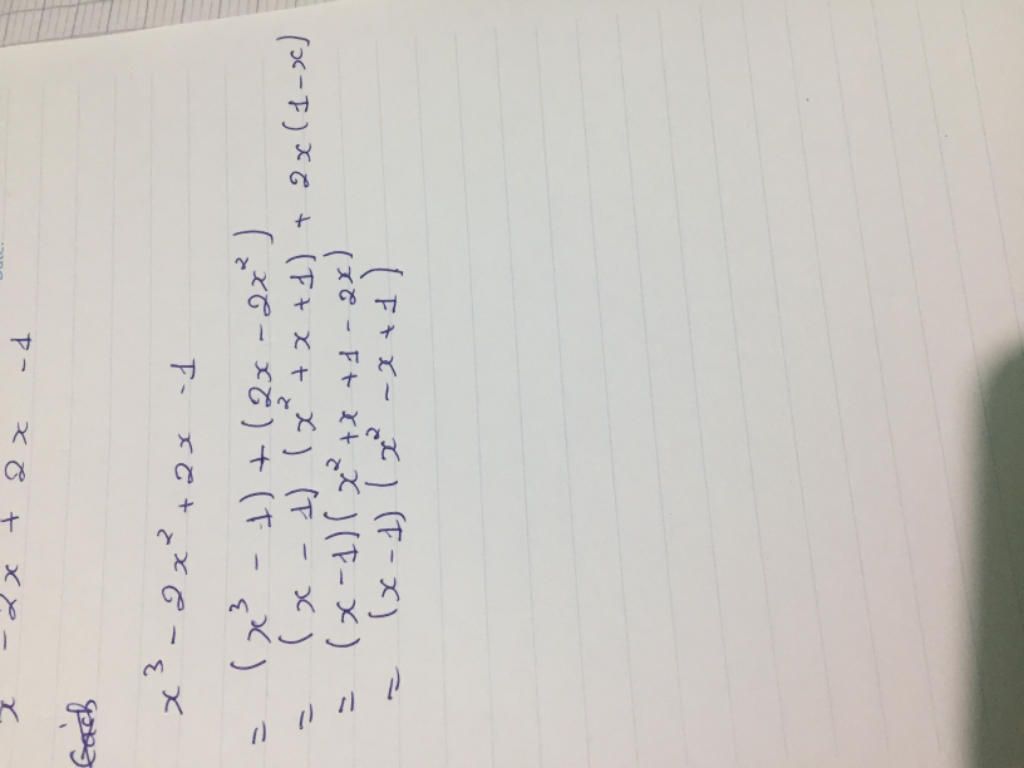 x - 2x + 2x - 1
Giải
x³ - 2x² + 2x - 1
= (x³ - 1) + (2x - 2x²)
= (x - 1) (x² + x + 1) + 2x (1 - x)
= (x - 1) (x² + x + 1 - 2x)
= (x - 1) (x² - x + 1)